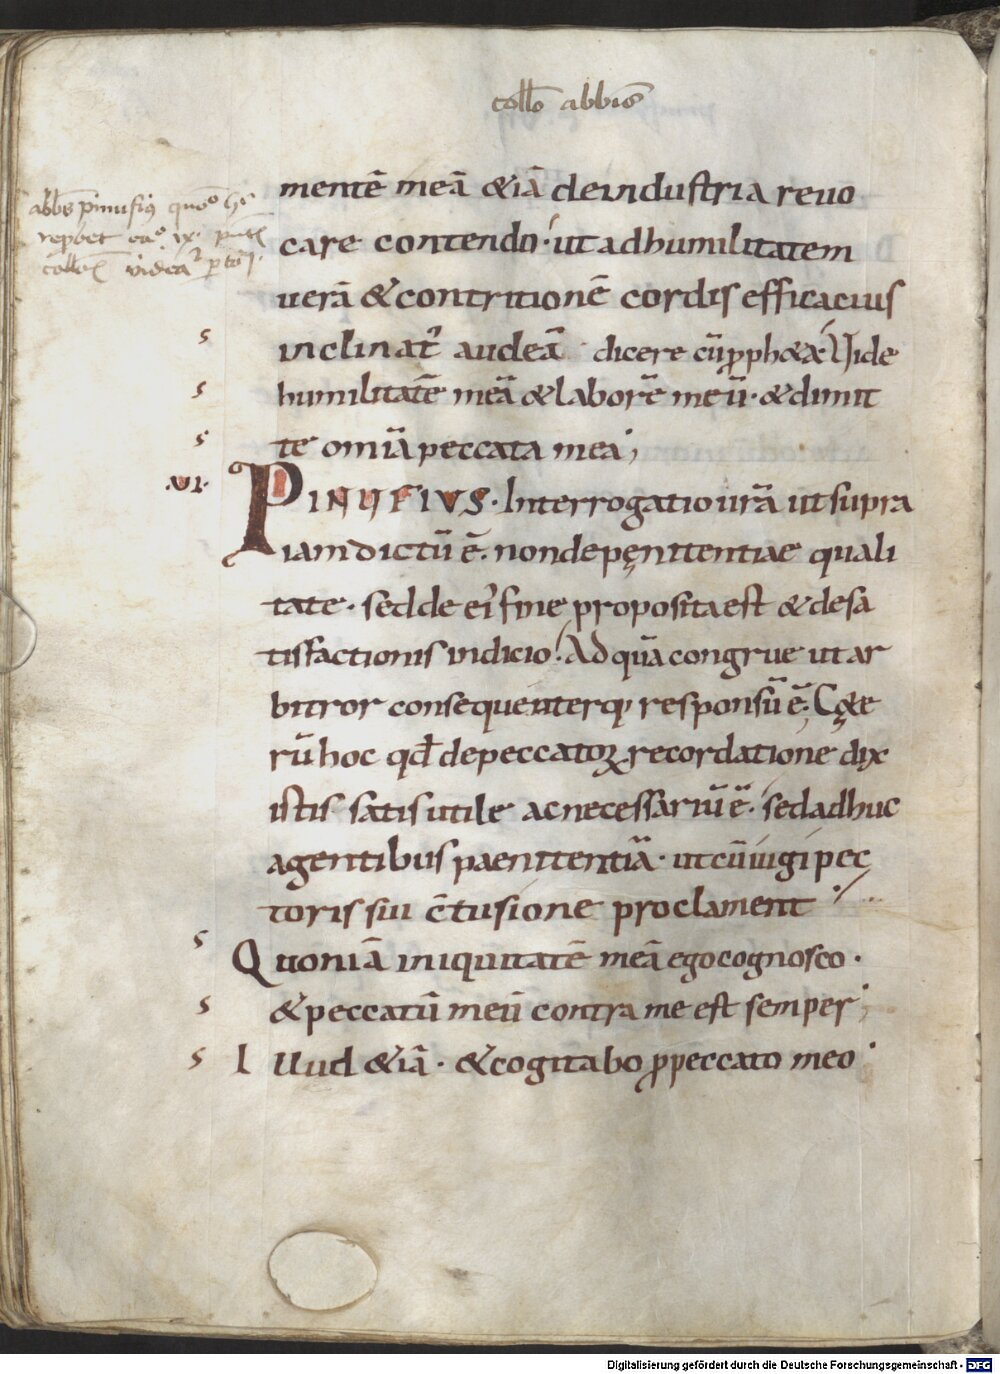 collo abbis
abbs pinufiꝰ
mentē meā &iā deindustria reuo
care contendo· ut adhumilitatem
uerā &contritionē cordis efficacius
inclinat᷑ audeā dicere cū ꝓph&a· Vide
humilitatē meā &laborē meū· &dimit
te omīa peccata mea;
.VI. PINUFIVS· Interrogatio urā ut supra
iam dictū ē· non de pęnitentiae quali
tate· sed de ei᷒ fine proposita est &desa
tisfactionis indicio· Ad quā congrue ut ar
bitror consequenterq; responsū ē· Cęte
rū hoc qđ de peccatoꝝ recordatione dix
istis satis utile ac necessariū ē· sed adhuc
agentibus paenitentiā· ut cū iugi pec
toris sui c̄tusione proclament·
s Quoniā iniquitatē meā ego cognosco·
s &peccatū meū contra me est semper;
s Illud &iā· &cogitabo ꝓ peccato meo·
Digitalisierung gefördert durch die Deutsche Forschungsgemeinschaft - DFG